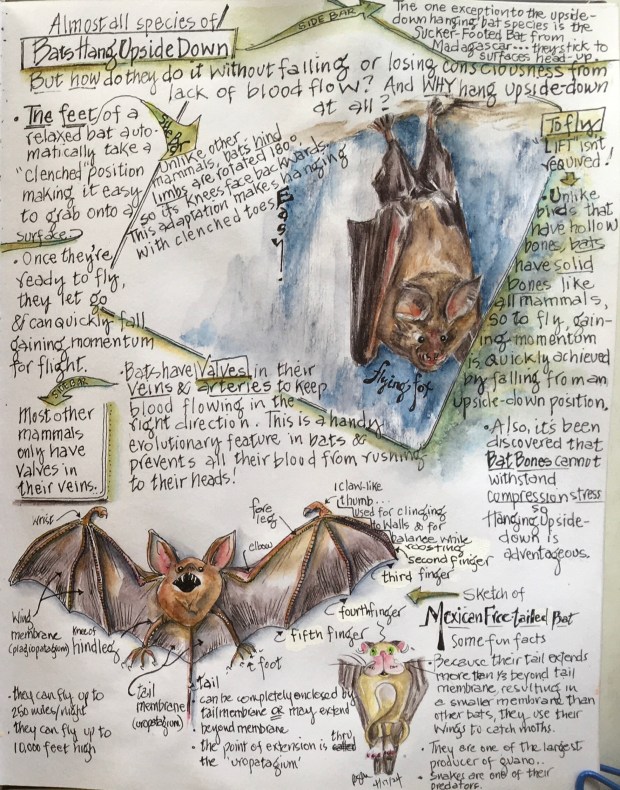 Almost all species of
Bats Hang Upside Down
SIDE BAR
The one exception to the upside-
down hanging bat species is the
Sucker-Footed Bat from
Madagascar... they stick to
surfaces head-up.
But how do they do it without falling or losing consciousness from
lack of blood flow? And WHY hang upside-down
at all?
• The feet of a
relaxed bat auto-
matically take a
"clenched position
making it easy
to grab onto a
surface.
• Once they're
ready to fly,
they let go
& can quickly fall
gaining momentum
for flight.
Side bar
Unlike other
mammals, bats hind
limbs are rotated 180°
so its knees face backwards
This adaptation makes hanging
with clenched toes
Easy!
To fly
"LIFT" isn't
required!
• Unlike
birds that
have hollow
bones, bats
have solid
bones like
all mammals,
so to fly, gain-
ing momentum
is quickly achieved
by falling from an
upside-down position.
flying fox
SIDE BAR
Most other
mammals
only have
valves in
their veins..
• Bats have Valves in their
veins & arteries to keep
blood flowing in the
right direction. This is a handy
evolutionary feature in bats &
prevents all their blood from rushing
to their heads!
• Also, it's been
discovered that
Bat Bones cannot
withstand
compression stress
so
Hanging Upside-
down is
advantageous.
wrist
fore
leg
elbow
1 claw-like
thumb...
used for clinging
to walls & for
balance while
roosting
second finger
third finger
fourth finger
fifth finger
foot
Wing
membrane
(plagiopatagium)
Knee of
hindleg
tail
membrane
(uropatagium)
• they can fly up to
250 miles/night
• they can fly up to
10,000 feet high
tail
can be completely enclosed by
tail membrane OR may extend
beyond membrane
• the point of extension is thru
called
the "uropatagium"
Sketch of
Mexican Free-tailed Bat
Some fun facts
• Because their tail extends
more than ⅓ beyond tail
membrane, resulting in
a smaller membrane than
other bats, they use their
wings to catch moths.
• They are one of the largest
producer of guano..
• Snakes are one of their
predators.